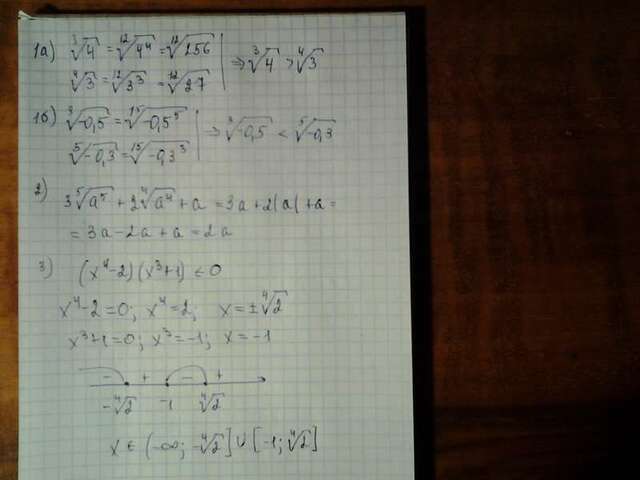 1а) ∛4 = ¹²√4⁴ = ¹²√256 | ⇒ ∛4 > ⁴√3
⁴√3 = ¹²√3³ = ¹²√27
1б) ∛-0,5 = ¹⁵√-0,5⁵ | ⇒ ∛-0,5 < ⁵√-0,3
⁵√-0,3 = ¹⁵√-0,3³
2) 3⁵√a⁵ + 2⁴√a⁴ + a = 3a + 2|a| + a =
= 3a - 2a + a = 2a
3) (x⁴-2)(x³+1) ≤ 0
x⁴-2=0; x⁴=2; x=±⁴√2
x³+1=0; x³=-1; x=-1
- + - +
-⁴√2 -1 ⁴√2
x ∈ (-∞; -⁴√2] ∪ [-1; ⁴√2]